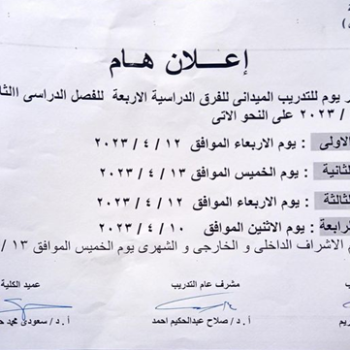 إعلان هام
يوم للتدريب الميدانى للفرق الدراسية الاربعة للفصل الدراسى
٢٠٢٣ على النحو الاتى
الاولى : يوم الاربعاء الموافق ١٢ / ٤ / ٢٠٢٣
الثانية : يوم الخميس الموافق ١٣ / ٤ / ٢٠٢٣
الثالثة : يوم الاربعاء الموافق ١٢ / ٤ / ٢٠٢٣
رابعة : يوم الاثنين الموافق ١٠ / ٤ / ٢٠٢٣
الاشراف الداخلى و الخارجى و الشهرى يوم الخميس الموافق ١٣ /
مشرف عام التدريب عميد الكلية
أ . د / صلاح عبدالحكيم احمد أ . د / سعودى محمد